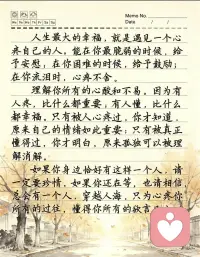 Memo No.
Date
人生最大的幸福，就是遇见一个心
疼自己的人，能在你最脆弱的时候，给
予安慰；在你困难的时候，给予鼓励；
在你流泪时，心疼不舍。
理解你所有的心酸和不易。因为有
人疼，比什么都重要；有人懂，比什么
都幸福。只有被人心疼过，你才知道，
原来自己的情绪如此重要；只有被真正
懂得过，你才明白，原来孤独可以被理
解消解。
如果你身边恰好有这样一个人，请
一定要珍惜，如果你还在等，也请相信
总会有一个人，穿越人海，只为心疼你
所有的过往，懂得你所有的欲言